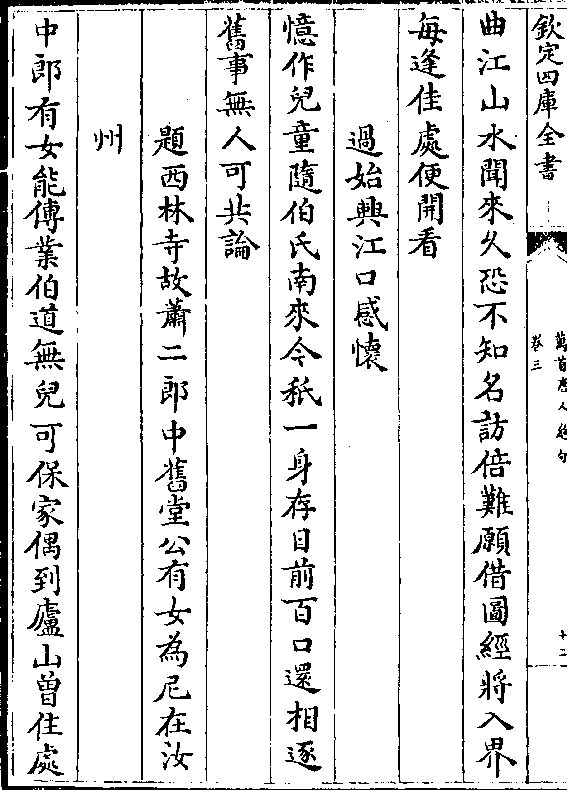 欽定四庫全書
萬首唐人絶句
卷三
十二
曲江山水聞來久恐不知名訪倍難願借圖經將入界
每逢佳處便開看
過始興江口感懷
憶作兒童隨伯氏南來今秪一身存目前百口還相逐
舊事無人可共論
題西林寺故蕭二郎中舊堂公有女為尼在汝
州
中郎有女能傳業伯道無兒可保家偶到廬山曾住處